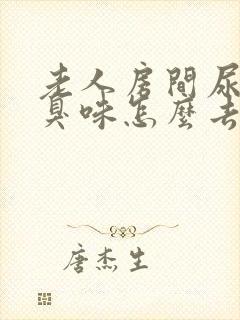 老人房間尿
臭味怎麼去
唐杰生